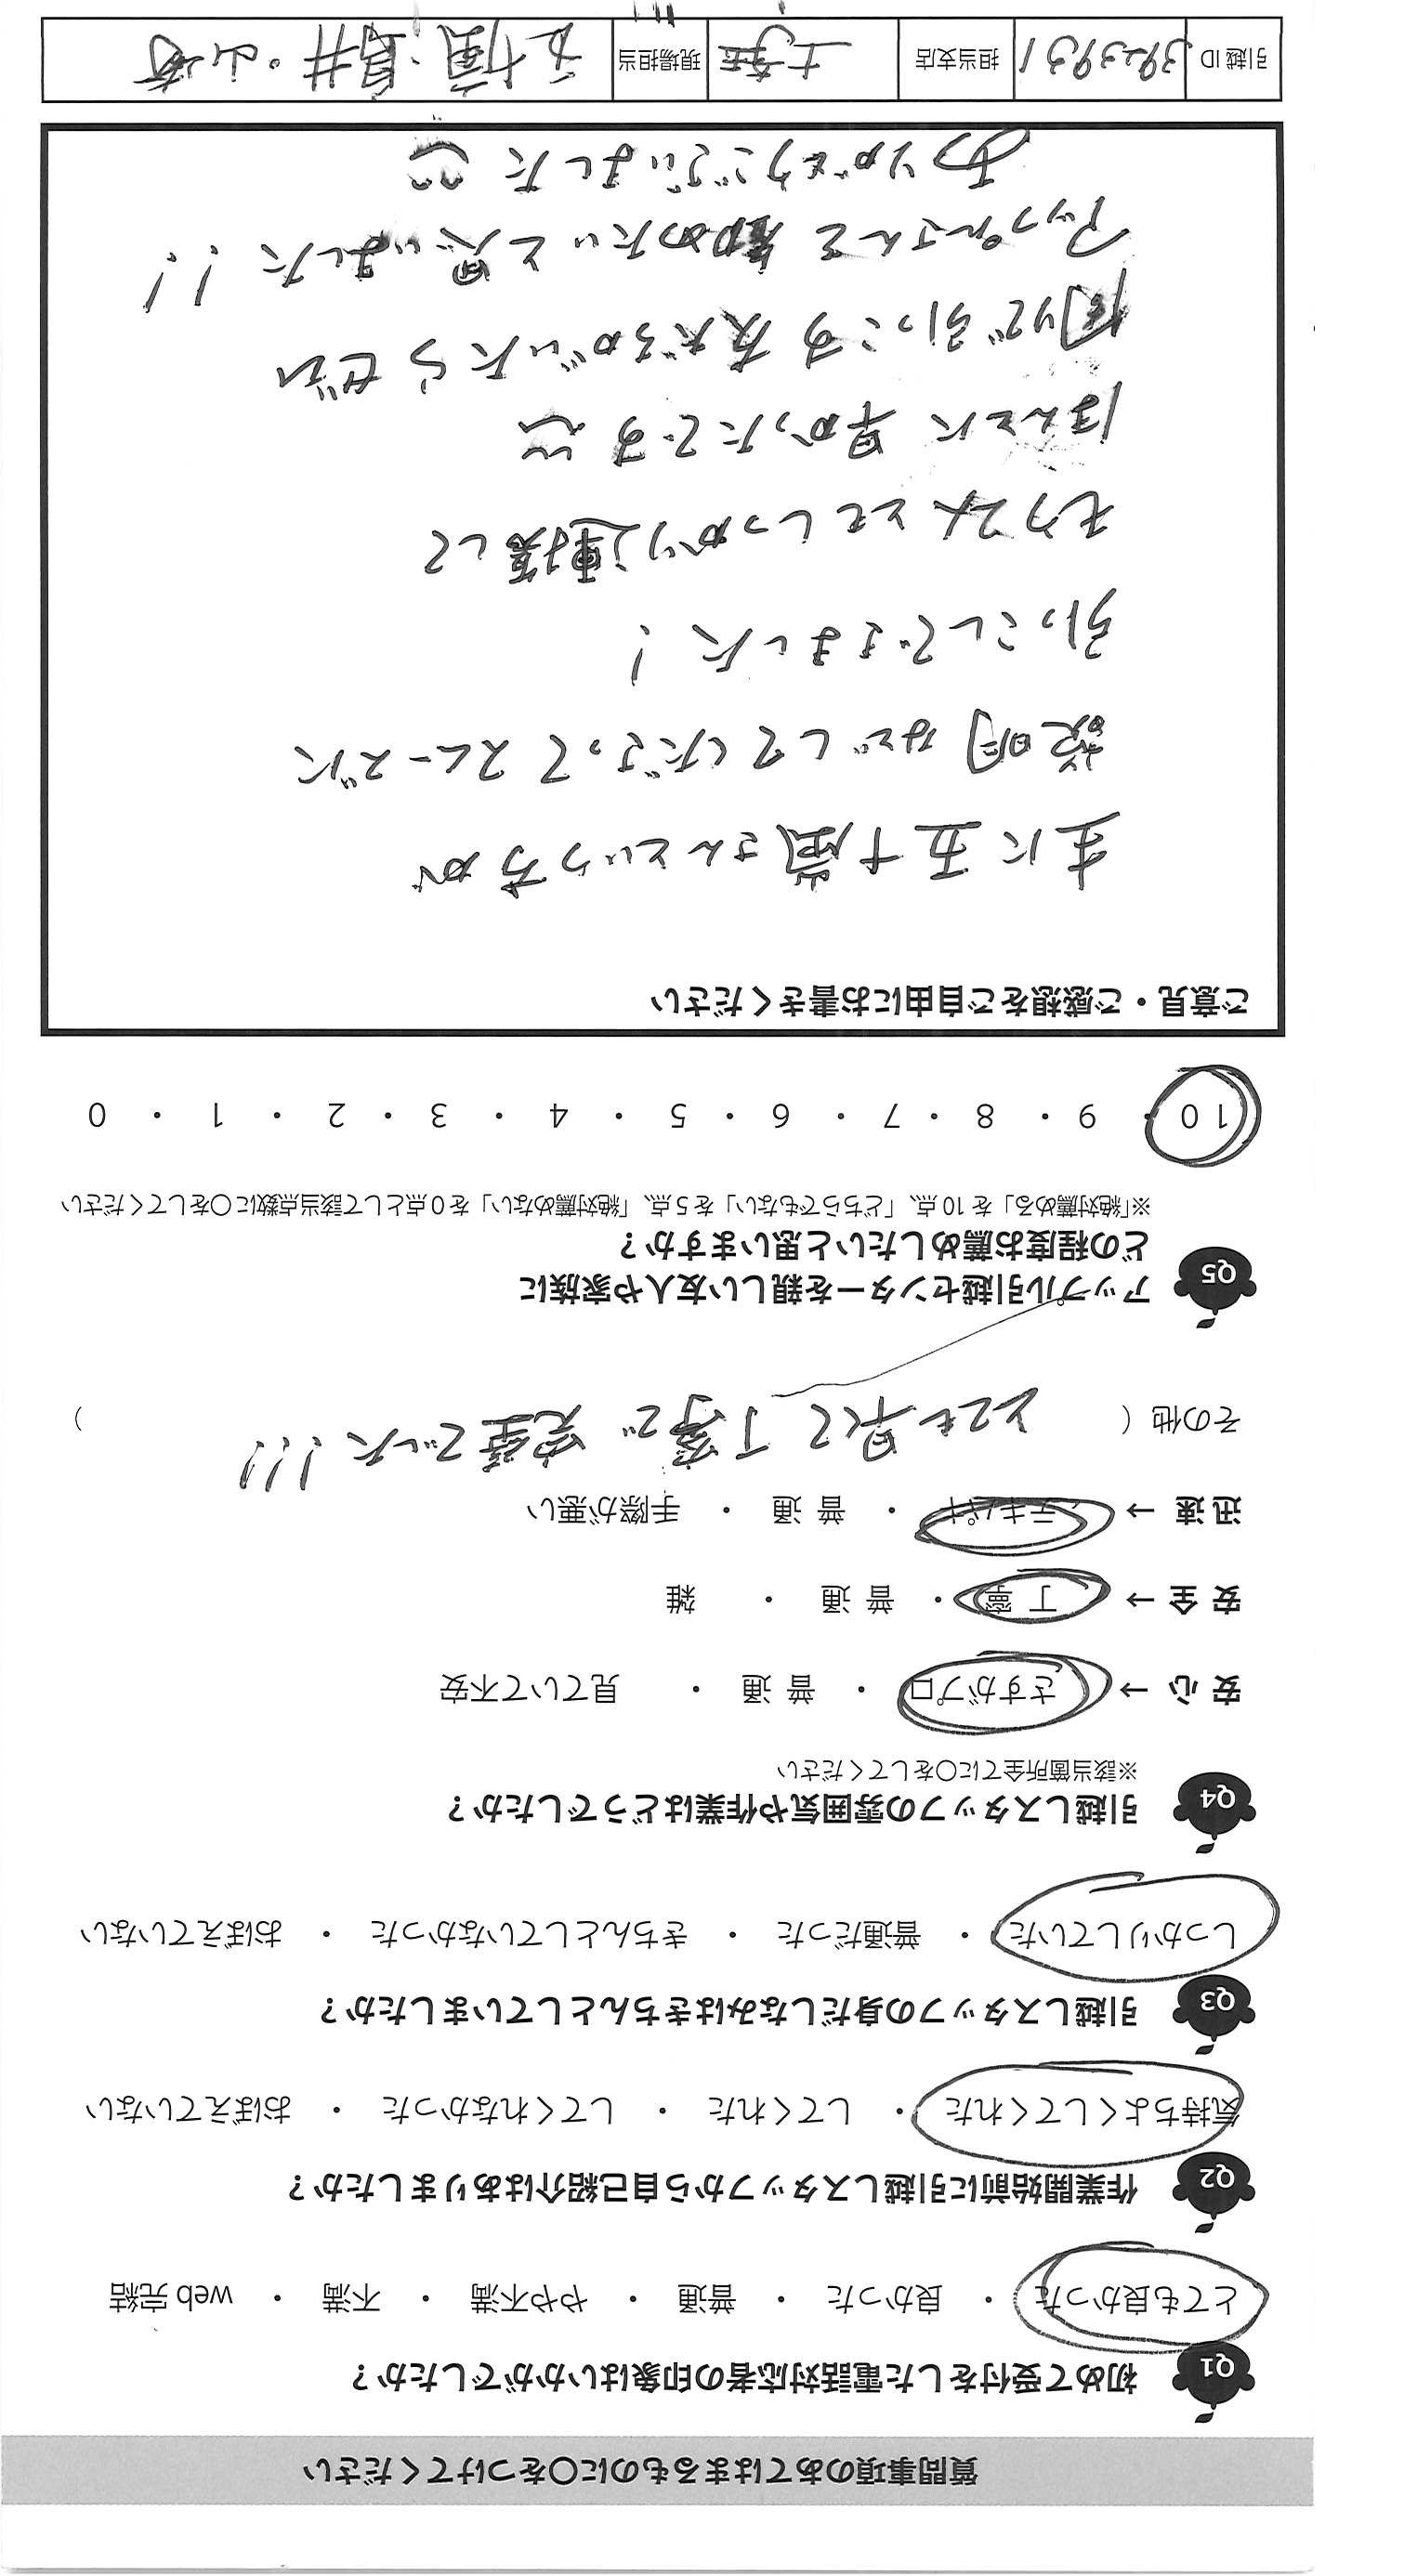 質問事項のあてはまるものに○をつけてください
Q1 初めて受付をした電話対応者の印象はいかがでしたか？
とても良かった ・ 良かった ・ 普通 ・ やや不満 ・ 不満 ・ web 完結
Q2 作業開始前に引越しスタッフから自己紹介はありましたか？
気持ちよくしてくれた ・ してくれた ・ してくれなかった ・ おぼえていない
Q3 引越しスタッフの身だしなみはきちんとしていましたか？
しっかりしていた ・ 普通だった ・ きちんとしていなかった ・ おぼえていない
Q4 引越しスタッフの雰囲気や作業はどうでしたか？
※該当箇所全てに○をしてください
安 心 → さすがプロ ・ 普 通 ・ 見ていて不安
安 全 → 丁 寧 ・ 普 通 ・ 雑
迅 速 → テキパキ ・ 普 通 ・ 手際が悪い
その他（ とても早くて丁寧で 完璧でした!!! ）
Q5 アップル引越センターを親しい友人や家族に
どの程度お薦めしたいと思いますか？
※「絶対薦める」を 10 点、「どちらでもない」を 5 点、「絶対薦めない」を 0 点として該当点数に○をしてください
10 ・ 9 ・ 8 ・ 7 ・ 6 ・ 5 ・ 4 ・ 3 ・ 2 ・ 1 ・ 0
ご意見・ご感想をご自由にお書きください
主に五十嵐さんという方が
説明などしてくださってスムーズに
引っこしできました!
もう2人ともしっかり連携して
ほんとに早かったです
周りで引っこす友だちがいたらぜひ
アップルさんを勧めたいと思いました!!
ありがとうございました
引越 ID 3923931 担当支店 現場担当 五十嵐・島井・山崎